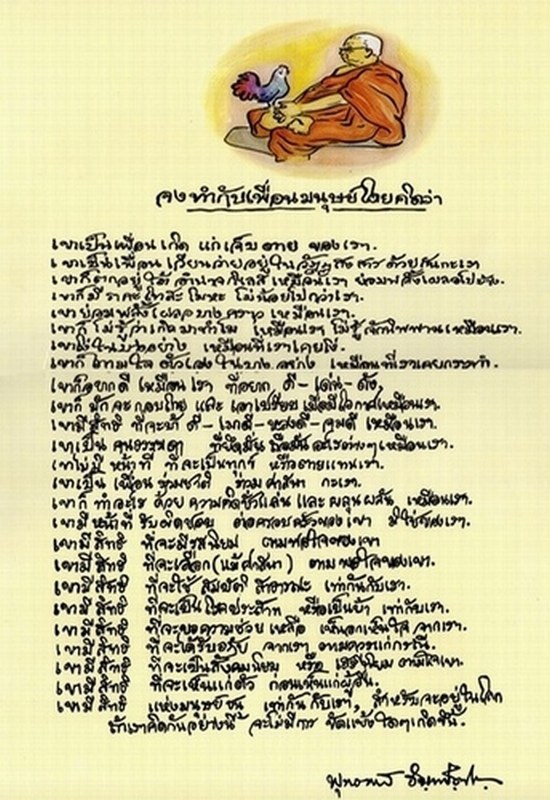 จงทำกับเพื่อนมนุษย์โดยคิดว่า
เขาเป็นเพื่อน เกิด แก่ เจ็บ ตาย ของเรา.
เขาเป็นเพื่อน เวียนว่ายอยู่ในวัฏฏสงสาร ด้วยกันกะเรา
เขาก็ตกอยู่ใต้ อำนาจกิเลส เหมือนเรา ย่อมพลั้งเผลอไปบ้าง.
เขาก็มี ราคะ โทสะ โมหะ ไม่น้อยไปกว่าเรา.
เขาย่อมพลั้งเผลอบางคราว เหมือนเรา.
เขาก็ ไม่รู้ว่าเกิดมาทำไม เหมือนเรา ไม่รู้จักนิพพานเหมือนเรา.
เขาโง่ในบางอย่าง เหมือนที่เราเคยโง่.
เขาก็ ตามใจ ตัวเองในบางอย่าง เหมือนที่เราเคยกระทำ.
เขาก็อยากดี เหมือนเรา ที่อยาก ดี-เด่น-ดัง,
เขาก็ มักจะกอบโกย และ เอาเปรียบ เมื่อมีโอกาสเหมือนเรา.
เขามีสิทธิ ที่จะบ้าดี-เมาดี-หลงดี-จมดี เหมือนเรา.
เขาเป็น คนธรรมดา ที่ยึดมั่น ถือมั่น อะไรต่างๆ เหมือนเรา.
เขาไม่มี หน้าที่ ที่จะเป็นทุกข์ หรือตายแทนเรา.
เขาเป็น เพื่อน ร่วมชาติ ร่วมศาสนา กะเรา.
เขาก็ ทำอะไร ด้วย ความคิดชั่วแล่น และ ผลุนผลัน เหมือนเรา.
เขามี หน้าที่ รับผิดชอบ ต่อครอบครัวของเขา มิใช่ของเรา.
เขามี สิทธิ ที่จะมีรสนิยม ตามพอใจของเขา
เขามี สิทธิ ที่จะเลือก (แม้ศาสนา) ตามพอใจของเขา.
เขามี สิทธิ ที่จะใช้ สมบัติ สาธารณะ เท่ากันกับเรา.
เขามี สิทธิ ที่จะเป็นโรคประสาท หรือเป็นบ้า เท่ากับเรา.
เขามี สิทธิ ที่จะขอความช่วย เหลือ เห็นอกเห็นใจ จากเรา.
เขามี สิทธิ ที่จะได้รับอภัย จากเรา ตามควรแก่กรณี.
เขามี สิทธิ ที่จะเป็นสังคมนิยม หรือ เสรีนิยม ตามใจเขา.
เขามี สิทธิ ที่จะเห็นแก่ตัว ก่อนเห็นแก่ผู้อื่น.
เขามี สิทธิ แห่งมนุษยชน เท่ากันกับเรา, สำหรับจะอยู่ในโลก
ถ้าเราคิดกันอย่างนี้ จะไม่มีการ ขัดแย้งใดๆเกิดขึ้น.
พุทธทาส อินฺทปญฺโญ